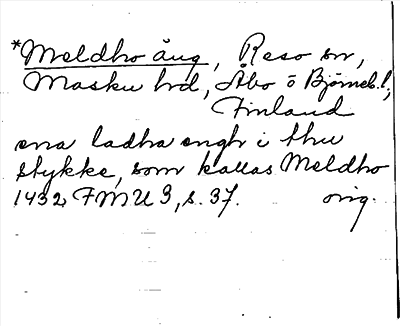 *Meldho äng, Reso sn,
Masku hd, Åbo o Björneb. l,
Finland
ena ladha engh i thu
stykke, som kallas Meldho
1432 FMU 3, s. 37. orig.